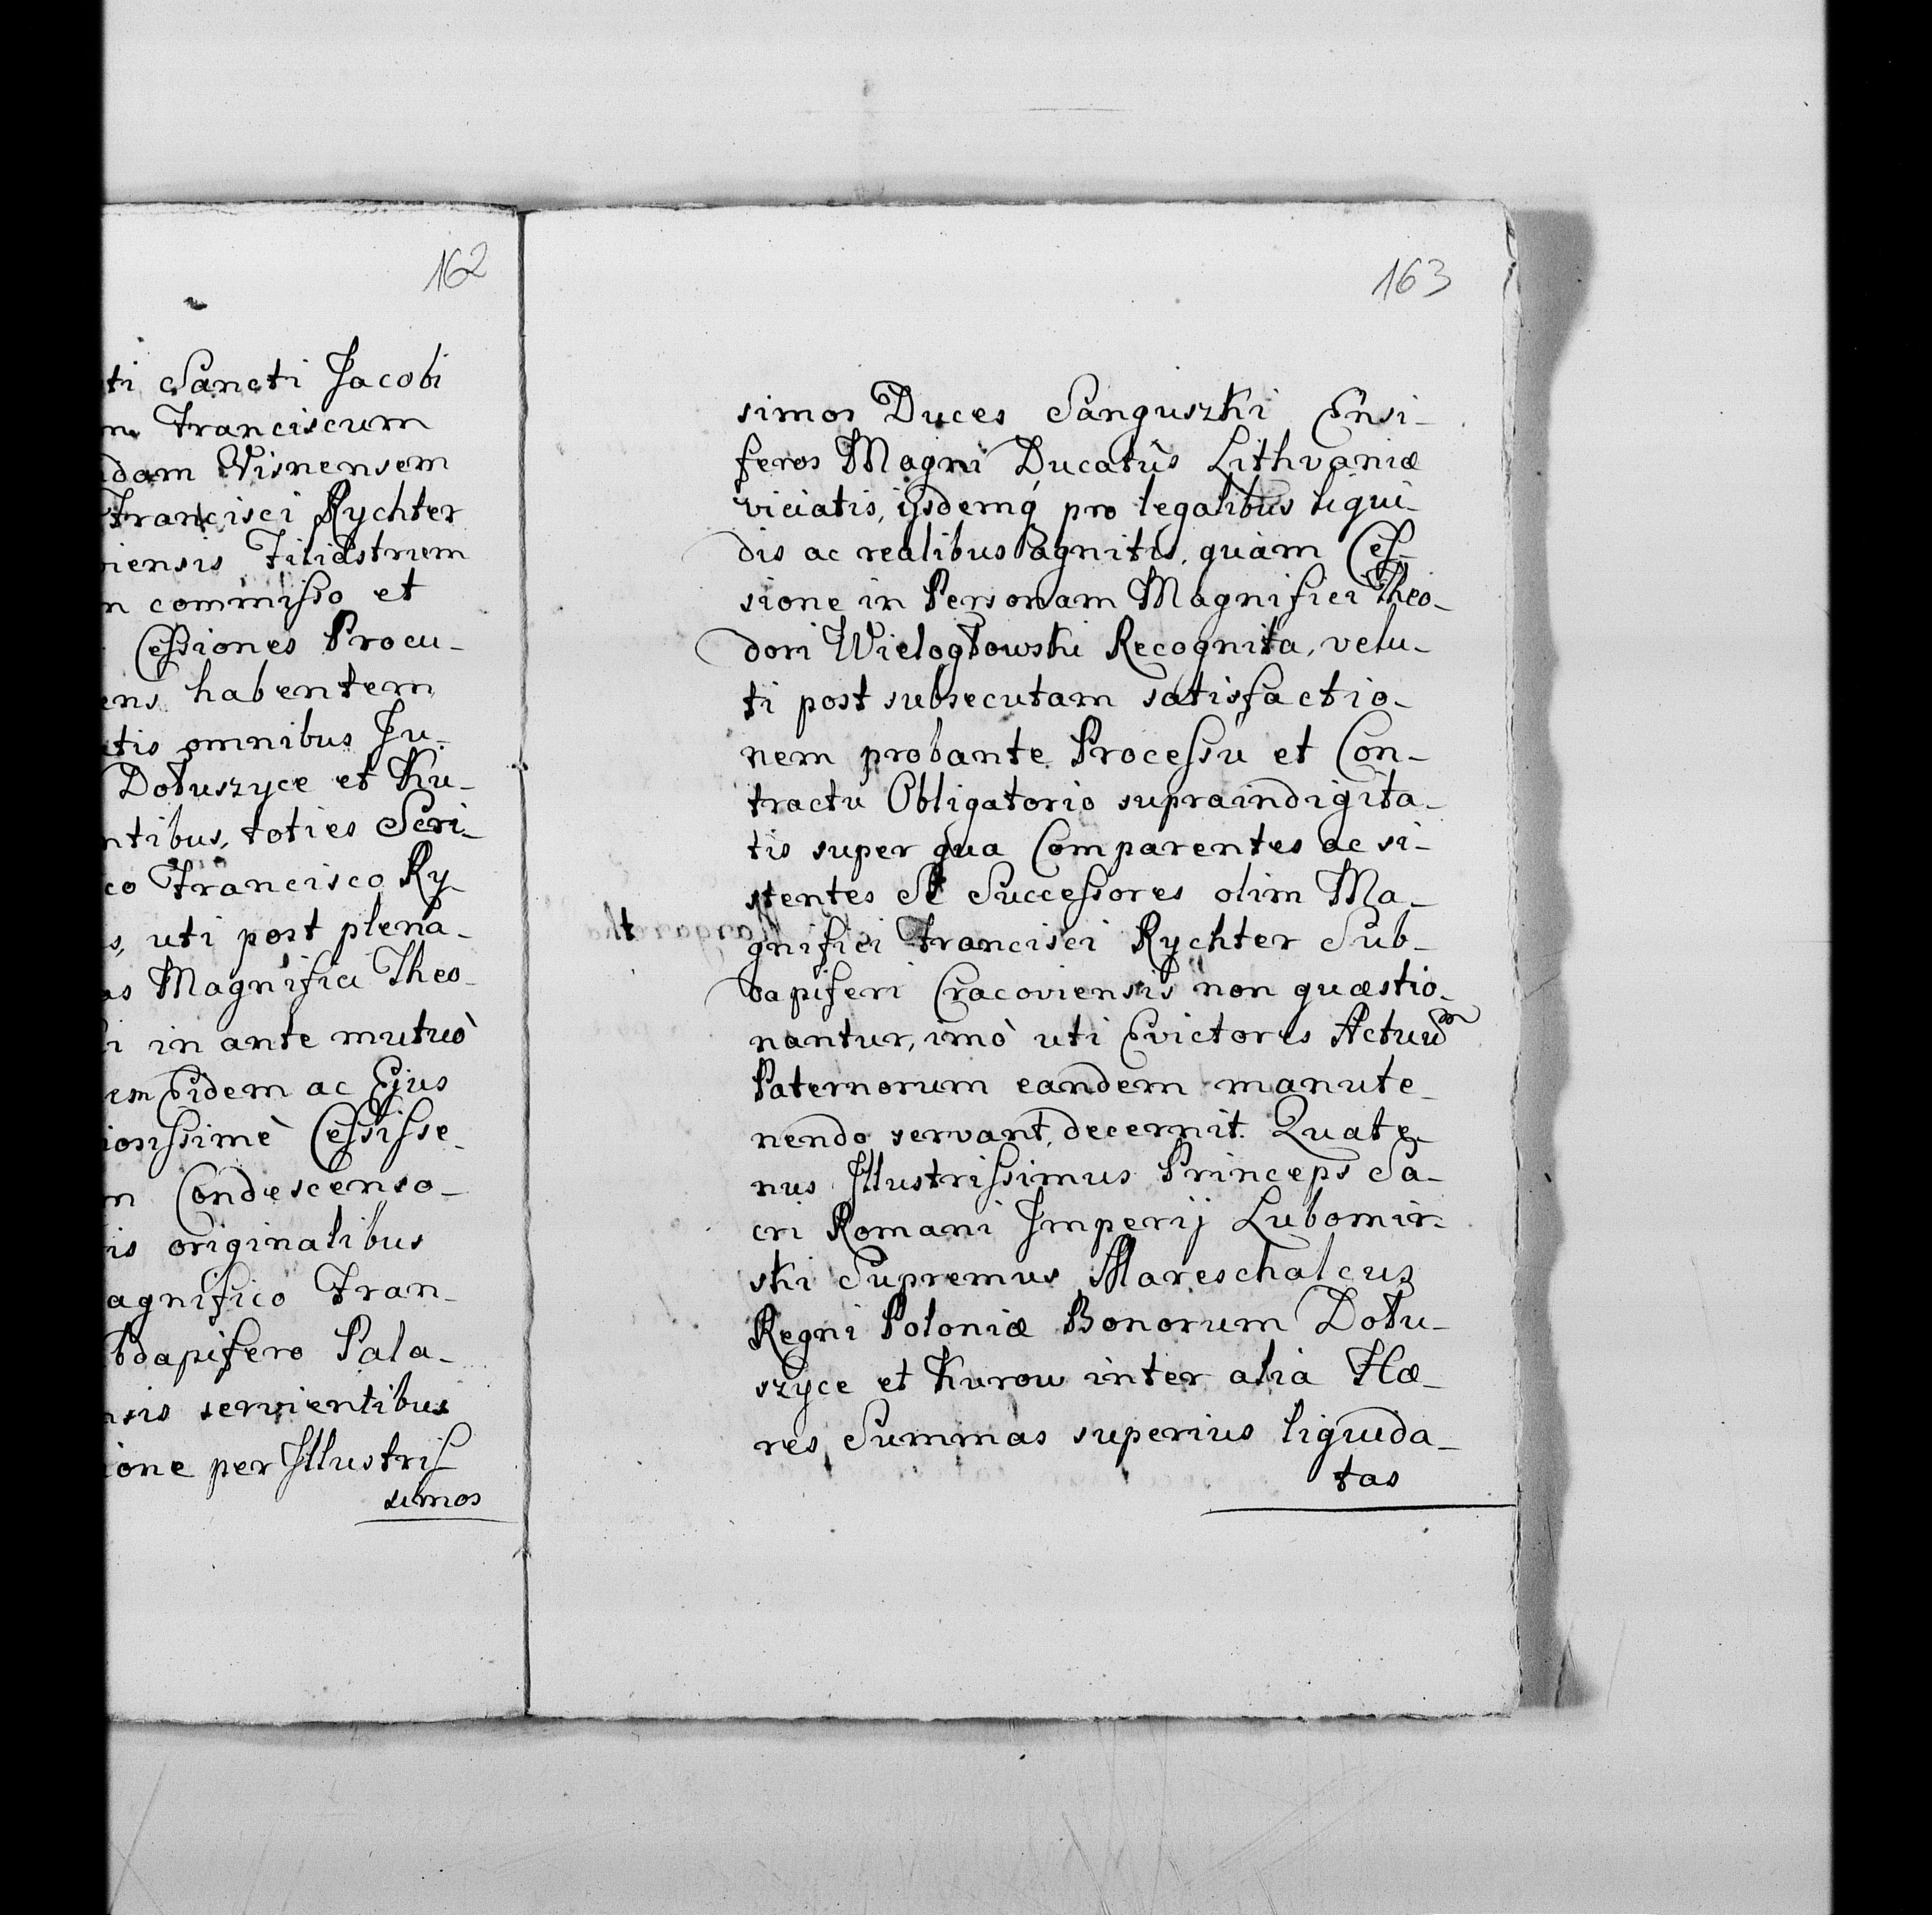 162
ti Sancti Jacobi
Franciscum
dam Visnensem
Francisci Rychter
iensis Filiastrum
commisso et
Cessiones Procu-
ens habentem
tis omnibus Ju-
Dołuszyce et Ku-
ntibus, toties Scri-
co Francisco Ry-
s, uti post plena-
as Magnifici Theo-
i in ante mutuò
em Eidem ac Ejus
ionissimè Cessisse
Condescenso-
is originalibus
agnifico Fran-
bdapifero Pala-
nsis servientibus
ione per Illustris
simos
163
simos Duces Sanguszki Ensi-
feros Magni Ducatûs Lithvaniæ
viciatis, ijsdemq́ pro legalibus liqui-
dis ac realibus agnitis, quàm Ces-
sione in Personam Magnifici Theo-
dori Wielogłowski Recognita, velu-
ti post subsecutam satisfactio-
nem probante Processu et Con-
tractu Obligatorio supraindigita-
tis super qua Comparentes ac si-
stentes Se Successores olim Ma-
gnifici Francisci Rychter Sub-
dapiferi Cracoviensis non quæstio-
nantur, imò uti Evictores Actuum
Paternorum eandem manute-
nendo servant, decernit. Quate-
nus Illustrissimus Princeps Sa-
cri Romani Imperij Lubomir-
ski Supremus Mareschalcus
Regni Poloniæ Bonorum Dołu-
szyce et Kurow inter alia Hæ-
res Summas superius liquida-
tas